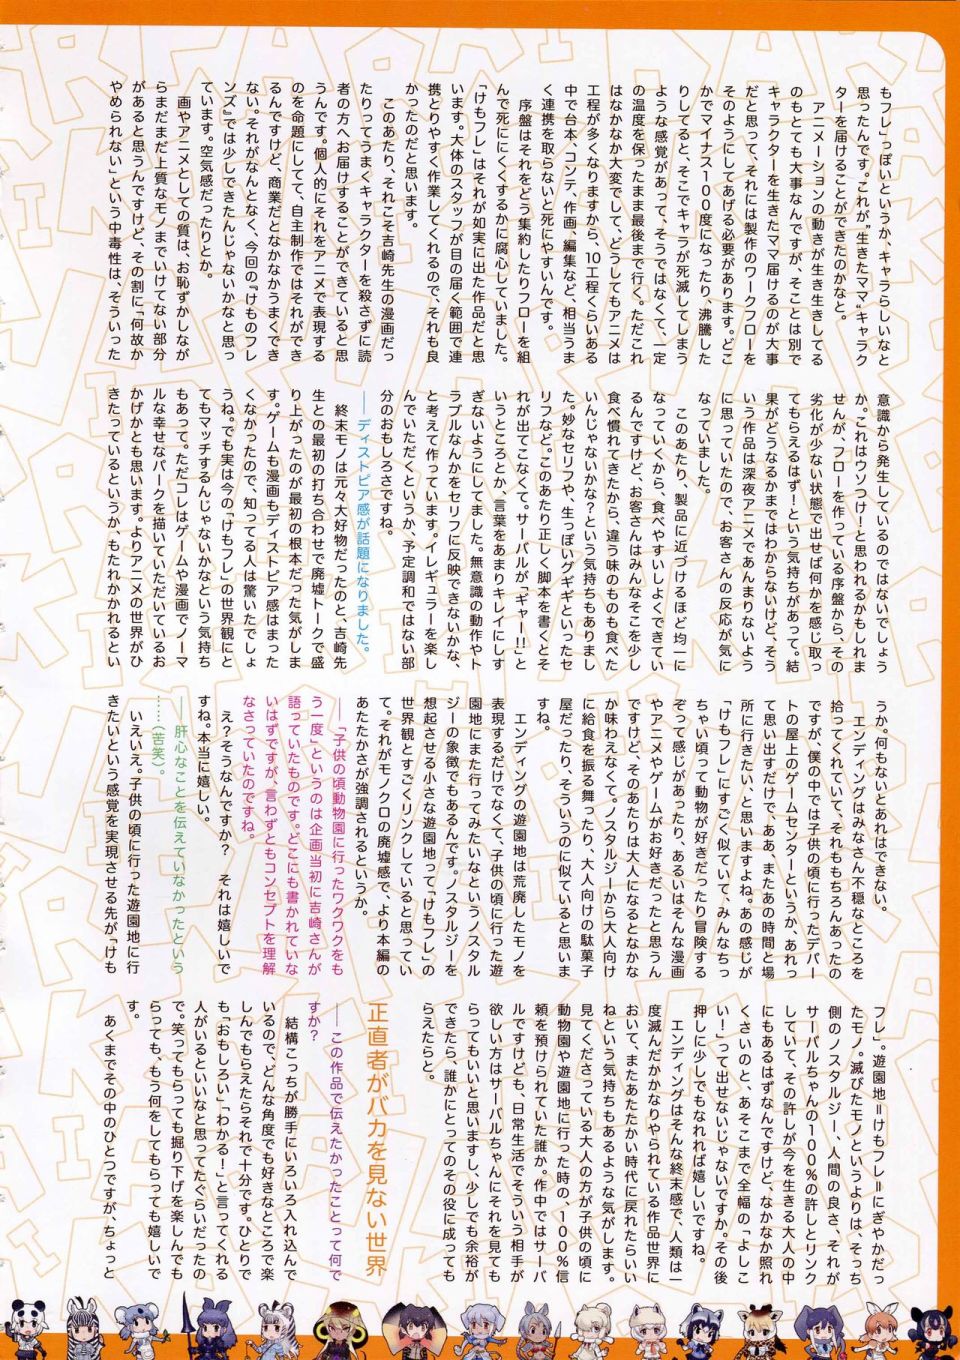 もフレ」っぽいというか、キャラらしいなと
思ったんです。これが“生きたママ”キャラク
ターを届けることができたのかなと。
　アニメーションの動きが生き生きしてる
のもとても大事なんですが、そことは別で
キャラクターを生きたママ届けるのが大事
だと思って、それには製作のワークフローを
そのようにしてあげる必要があります。どこ
かでマイナス100度になったり、沸騰した
りしてると、そこでキャラが死滅してしまう
ような感覚があって、そうではなくて、一定
の温度を保ったまま最後まで行く。ただこれ
はなかなか大変でして、どうしてもアニメは
工程が多くなりますから、10工程くらいある
中で台本、コンテ、作画、編集など、相当うま
く連携を取らないと死にやすいんです。
　序盤はそれをどう集約したりフローを組
んで死ににくくするかに腐心していました。
「けもフレ」はそれが如実に出た作品だと思
います。大体のスタッフが目の届く範囲で連
携とりやすく作業してくれるので、それも良
かったのだと思います。
　このあたり、それこそ吉崎先生の漫画だっ
たりってうまくキャラクターを殺さずに読
者の方へお届けすることができていると思
うんです。個人的にそれをアニメで表現する
のを命題にしてて、自主制作ではそれができ
るんですけど、商業だとなかなかうまくでき
ない。それがなんとなく、今回の『けものフレ
ンズ』では少しできたんじゃないかなと思っ
ています。空気感だったりとか。
　画やアニメとしての質は、お恥ずかしなが
らまだまだ上質なモノまでいけてない部分
があると思うんですけど、その割に「何故か
やめられない」という中毒性は、そういった
意識から発生しているのではないでしょう
か。これはウソつけ！と思われるかもしれま
せんが、フローを作っている序盤から、その
劣化が少ない状態で出せば何かを感じ取っ
てもらえるはず！という気持ちがあって。結
果がどうなるかまではわからないけど、そう
いう作品は深夜アニメであんまりないよう
に思っていたので、お客さんの反応が気に
なっていました。
　このあたり、製品に近づけるほど均一に
なっていくから、食べやすいしよくできてい
るんですけど、お客さんはみんなそこを少し
食べ慣れてきたから、違う味のものも食べた
いんじゃないかな？という気持ちもありまし
た。妙なセリフや、生っぽいグギギといったセ
リフなど。このあたり正しく脚本を書くとそ
れが出てこなくて。サーバルが、「ギャー！！」と
いうところとか、言葉をあまりキレイにしす
ぎないようにしてました。無意識の動作やト
ラブルなんかをセリフに反映できないかな、
と考えて作っています。イレギュラーを楽し
んでいただくというか、予定調和ではない部
分のおもしろさですね。
――ディストピア感が話題になりました。
　終末モノは元々大好物だったのと、吉崎先
生との最初の打ち合わせで廃墟トークで盛
り上がったのが最初の根本だった気がしま
す。ゲームも漫画もディストピア感はまった
くなかったので、知ってる人は驚いたでしょ
うね。でも実は今の「けもフレ」の世界観にと
てもマッチするんじゃないかなという気持ち
もあって。ただコレはゲームや漫画でノーマ
ルな幸せなパークを描いていただいているお
かげかとも思います。よりアニメの世界がひ
きたっているというか、もたれかかれるとい
うか。何もないとあれはできない。
　エンディングはみなさん不穏なところを
拾ってくれていて、それももちろんあったの
ですが、僕の中では子供の頃に行ったデパー
トの屋上のゲームセンターというか、あれっ
て思い出すだけで、ああ、またあの時間と場
所に行きたい、と思いますよね。あの感じが
「けもフレ」にすごく似ていて、みんなちっ
ちゃい頃って動物が好きだったり冒険する
ぞって感じがあったり、あるいはそんな漫画
やアニメやゲームがお好きだったと思うん
ですけど、そのあたりは大人になるとなかな
か味わえなくて。ノスタルジーから大人向け
に給食を振る舞ったり、大人向けの駄菓子
屋だったり、そういうのに似ていると思いま
すね。
　エンディングの遊園地は荒廃したモノを
表現するだけでなくて、子供の頃に行った遊
園地にまた行ってみたいなというノスタル
ジーの象徴でもあるんです。ノスタルジーを
想起させる小さな遊園地って「けもフレ」の
世界観とすごくリンクしていると思ってい
て。それがモノクロの廃墟感で、より本編の
あたたかさが強調されるというか。
――「子供の頃動物園に行ったワクワクをも
う一度」というのは企画当初に吉崎さんが
語っていたものです。どこにも書かれていな
いはずですが、言わずともコンセプトを理解
なさっていたのですね。
　え？そうなんですか？　それは嬉しいで
すね。本当に嬉しい。
――肝心なことを伝えていなかったという
……（苦笑）。
　いえいえ。子供の頃に行った遊園地に行
きたいという感覚を実現させる先が「けも
フレ」。遊園地＝けもフレ＝にぎやかだっ
たモノ。滅びたモノというよりは、そっち
側のノスタルジー、人間の良さ、それが
サーバルちゃんの100％の許しとリンク
していて、その許しが今を生きる大人の中
にもあるはずなんですけど、なかなか照れ
くさいのと、あそこまで全幅の「よしこ
い！」って出せないじゃないですか。その後
押しに少しでもなれれば嬉しいですね。
　エンディングはそんな終末感で、人類は一
度滅んだかかなりやられている作品世界に
おいて、またあたたかい時代に戻れたらいい
ねという気持ちもあるような気がします。
見てくださっている大人の方が子供の頃に
動物園や遊園地に行った時の、100％信
頼を預けられていた誰か。作中ではサーバ
ルですけども、日常生活でそういう相手が
欲しい方はサーバルちゃんにそれを見ても
らってもいいと思いますし、少しでも余裕が
できたら、誰かにとってのその役に成っても
らえたらと。
正直者がバカを見ない世界
――この作品で伝えたかったことって何で
すか？
　結構こっちが勝手にいろいろ入れ込んで
いるので、どんな角度でも好きなところで楽
しんでもらえたらそれで十分です。ひとりで
も「おもしろい」「わかる！」と言ってくれる
人がいるといいなと思ってたぐらいだったの
で。笑ってもらっても掘り下げを楽しんでも
らっても、もう何をしてもらっても嬉しいで
す。
　あくまでその中のひとつですが、ちょっと